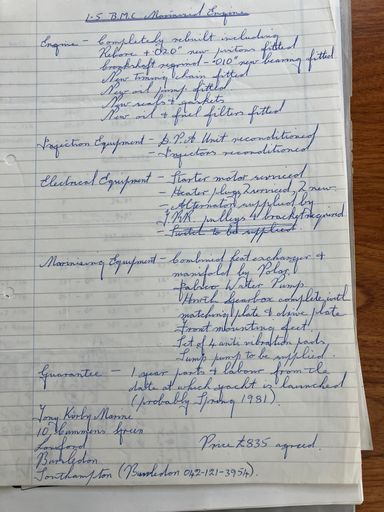 1.5 B.M.C Marinised Engine
Engine - Completely rebuilt including
Rebore + .020" new pistons fitted
Crankshaft regrind - .010" new bearing fitted
New timing chain fitted
New oil pump fitted
New seals & gaskets
New oil & fuel filters fitted
Injection Equipment - D.P.A Unit reconditioned
- Injectors reconditioned
Electrical Equipment - Starter motor serviced
- Heater plugs 2 serviced, 2 new
- Alternator supplied by
pulleys & bracket required
- to be supplied
Marinising Equipment - Combined heat exchanger &
manifold by Polar
Jabsco Water Pump
Hurth Gearbox complete with
matching plate & drive plate
Front mounting feet
Set of 4 anti vibration pads
Sump pump to be supplied.
Guarantee - 1 year parts & labour from the
date at which yacht is launched
(probably Spring 1981).
Tony Kirby Marine
10 Green
Price £835 agreed.
Bursledon
Southampton (Bursledon 042-121-3954).